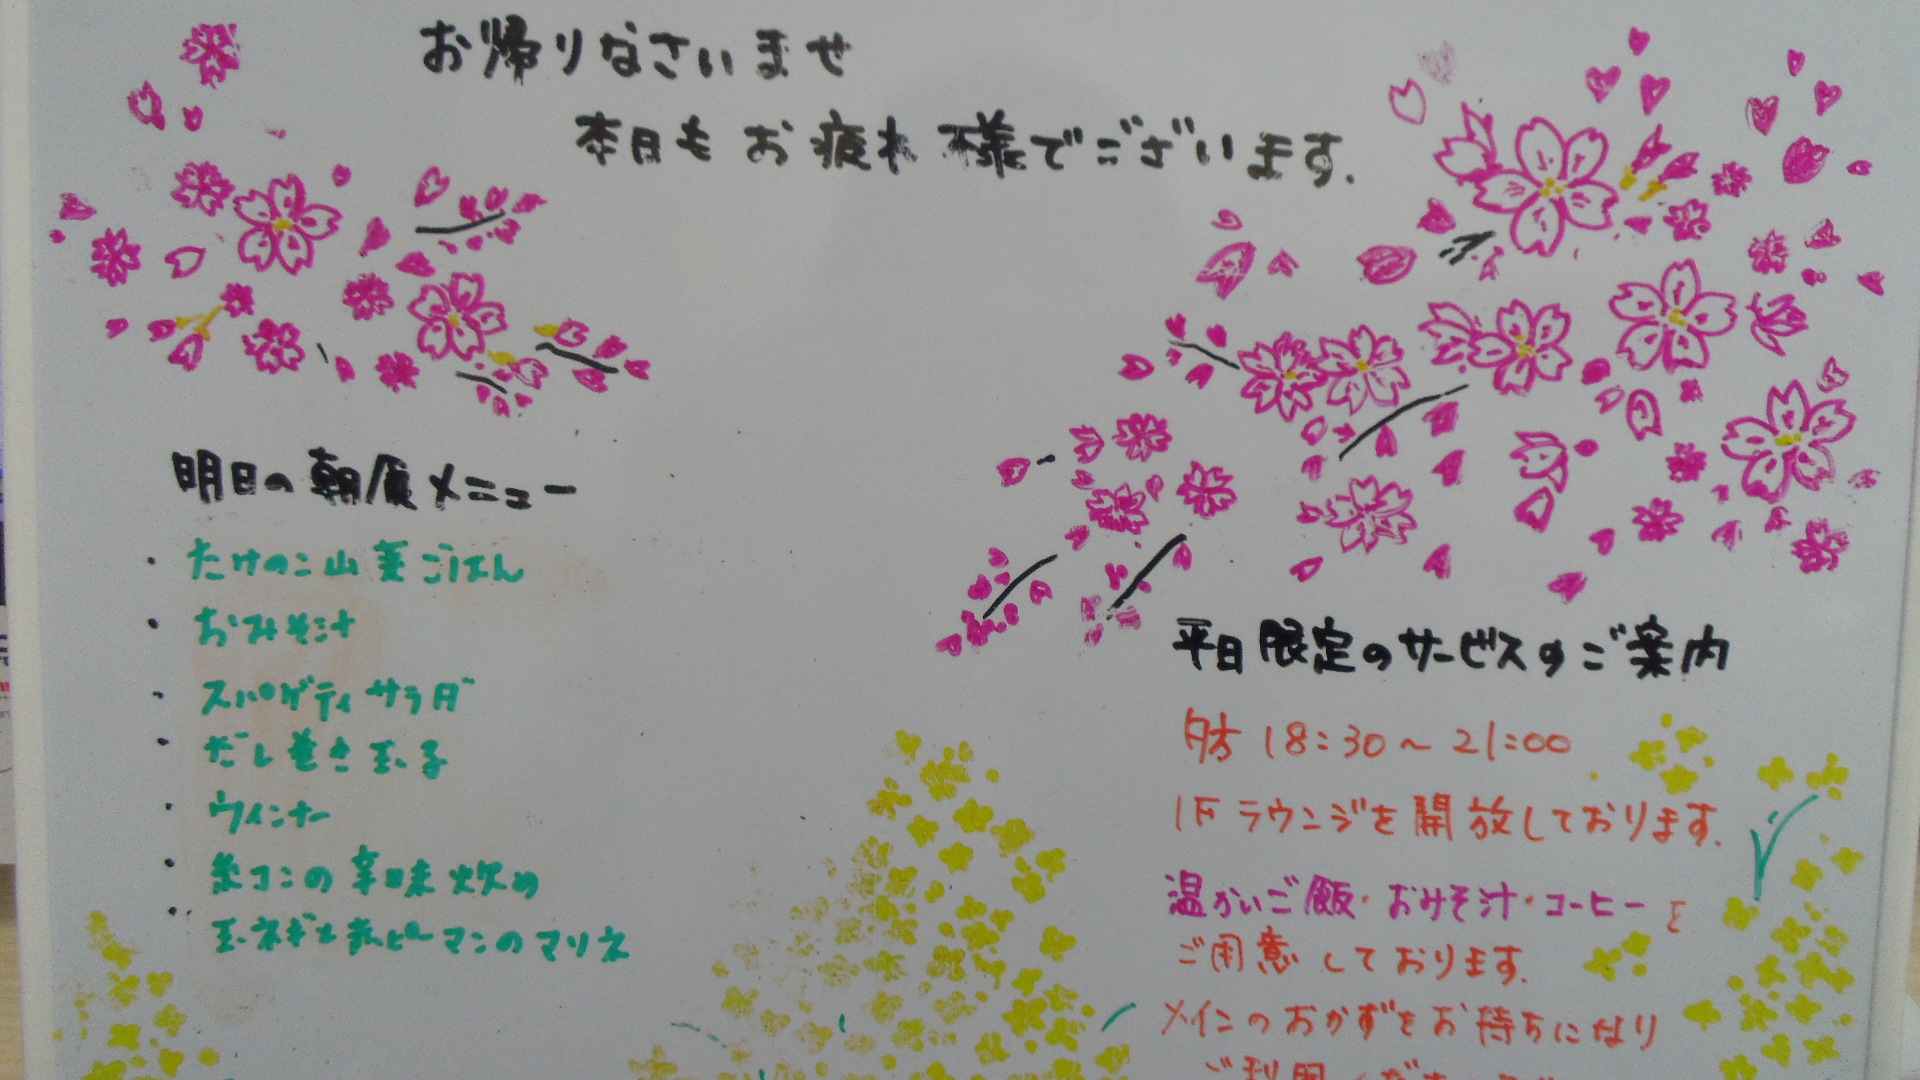 お帰りなさいませ
本日もお疲れ様でございます.
明日の朝食メニュー
・たけのこ山菜ごはん
・おみそ汁
・スパゲティサラダ
・だし巻き玉子
・ウィンナー
・糸コンの辛味炒め
・玉ネギと赤ピーマンのマリネ
平日限定のサービスのご案内
夕方 18:30～21:00
1Fラウンジを開放しております.
温かいご飯・おみそ汁・コーヒーを
ご用意しております.
メインのおかずをお持ちになり
ご利用ください